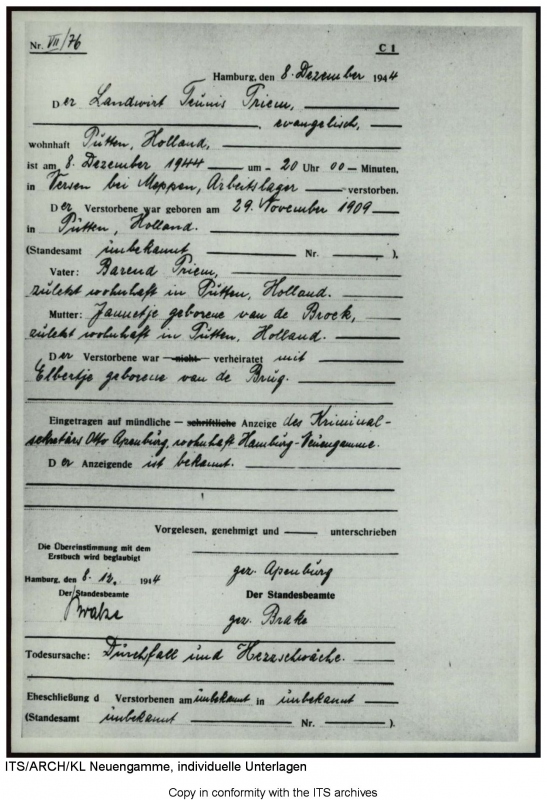 Nr. VII/76 C 1
Hamburg, den 8. Dezember 1944
Der Landwirt Teunis Priem,
evangelisch,
wohnhaft Putten, Holland,
ist am 8. Dezember 1944 um 20 Uhr 00 Minuten,
in Versen bei Meppen, Arbeitslager verstorben.
Der Verstorbene war geboren am 29. November 1909
in Putten, Holland.
(Standesamt unbekannt Nr. ).
Vater: Barend Priem,
zuletzt wohnhaft in Putten, Holland.
Mutter: Jannetje geborene van de Broek,
zuletzt wohnhaft in Putten, Holland.
Der Verstorbene war — nicht — verheiratet mit
Elbertje geborene van de Brug.
Eingetragen auf mündliche — schriftliche Anzeige des Kriminal-
sekretärs Otto Apenburg, wohnhaft Hamburg-Neuengamme.
Der Anzeigende ist bekannt.
Vorgelesen, genehmigt und unterschrieben
Die Übereinstimmung mit dem
Erstbuch wird beglaubigt
gez. Apenburg
Hamburg, den 8. 12. 1944
Der Standesbeamte Der Standesbeamte
Brake gez. Brake
Todesursache: Durchfall und Herzschwäche.
Eheschließung d Verstorbenen am unbekannt in unbekannt
(Standesamt unbekannt Nr. ).
ITS/ARCH/KL Neuengamme, individuelle Unterlagen
Copy in conformity with the ITS archives